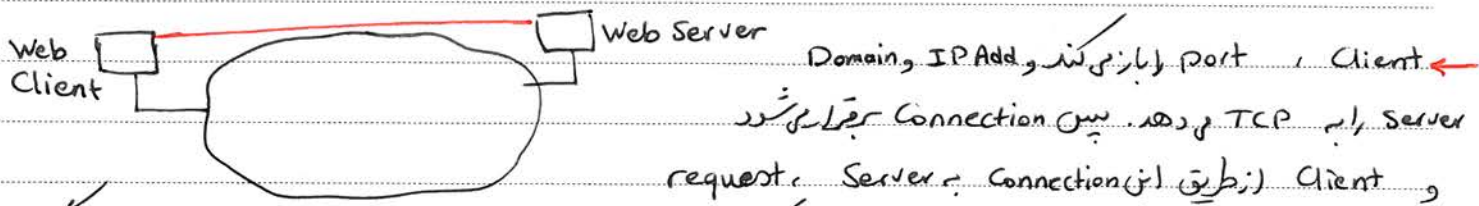 Web Client
Web Server
Client ، port را باز می‌کند و IP Add و Domain
Server را به TCP می دهد. سپس Connection برقرار می‌شود
و Client از طریق این Connection به Server ، request